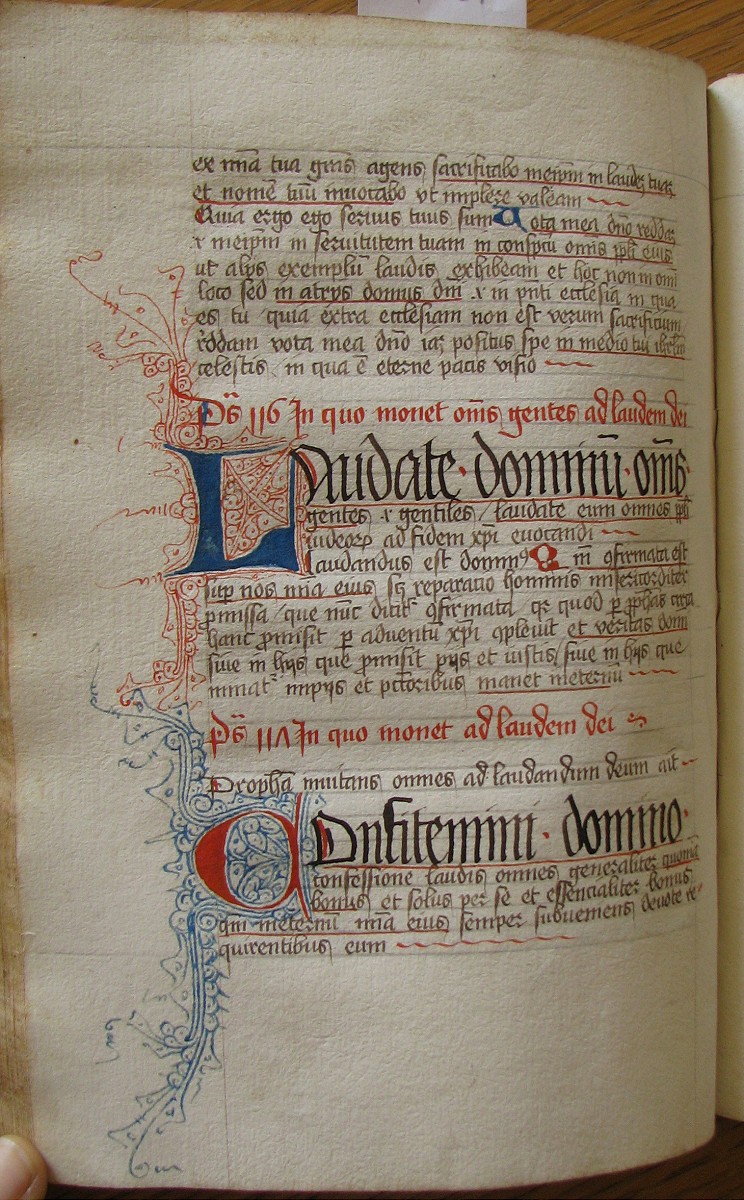 ex mīa tua grās agens sacrificabo meip̄m in laudeʒ tuaʒ
et nomē tuū invocabo ut implere valeam
Quia ergo ego servus tuus sum Vota mea dn̄o reddaʒ
⁊ meip̄m in servitutem tuam in conspctu omīs ppli eius
ut alijs exemplū laudis exhibeam et hoc non in omī
loco sed in atrijs domus dnī ⁊ in pn̄ti ecclesia in qua
es tu quia extra ecclesiam non est verum sacrificium
reddam vota mea dn̄o iaʒ positus spe in medio tui ihrl̄m
celestis in qua ē eterne pacis visio
Ps̄ 116 In quo monet om̄s gentes ad laudem dei
Laudate · dominū · om̄s ·
gentes ⁊ gentiles laudate eum omnes ppli
iudeoꝝ ad fidem xp̄i evocandi
laudandus est domin⁹ Q m̄ ꝯfirmata est
sup nos mīa eius sꝫ reparatio hominis misericorditer
promissa que nūc dicit ꝯfirmata qꝛ quod ꝑ ꝓphās circa
hanc ꝓmisit ꝑ adventū xp̄i ꝯplevit et veritas domī
sive in hijs que ꝓmisit pijs et iustis sive in hijs que
minat impijs et pctoribus manet ineternū
Ps̄ 11Λ In quo monet ad laudem dei
Prophā invitans omnes ad laudandum deum ait
Confitemini · domino ·
confessione laudis omnes generaliter quoniā
bonus et solus per se et essencialiter bonus
qm̄ ineternū mīa eius semper subveniens devote re⸗
quirentibus eum